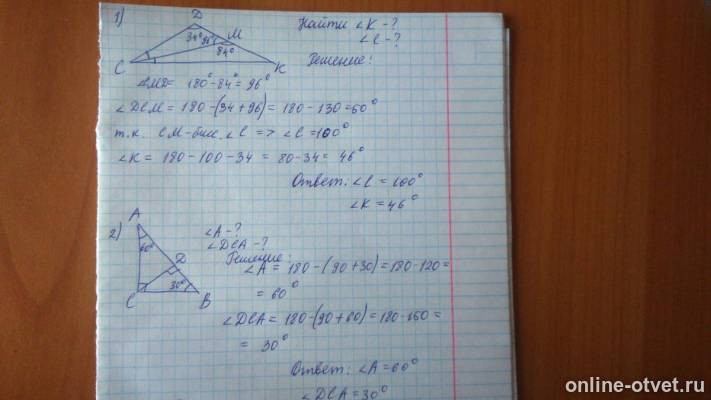 1)
D
34° 96° M
84°
C K
Найти ∠K - ?
∠C - ?
Решение:
∠CMD = 180° - 84° = 96°
∠DCM = 180 - (34 + 96) = 180 - 130 = 50°
т.к. CM - бис. ∠C => ∠C = 100°
∠K = 180 - 100 - 34 = 80 - 34 = 46°
Ответ: ∠C = 100°
∠K = 46°
2)
A
60°
D
30°
C B
∠A - ?
∠DCA - ?
Решение:
∠A = 180 - (90 + 30) = 180 - 120 =
= 60°
∠DCA = 180 - (90 + 60) = 180 - 150 =
= 30°
Ответ: ∠A = 60°
∠DCA = 30°
online-otvet.ru